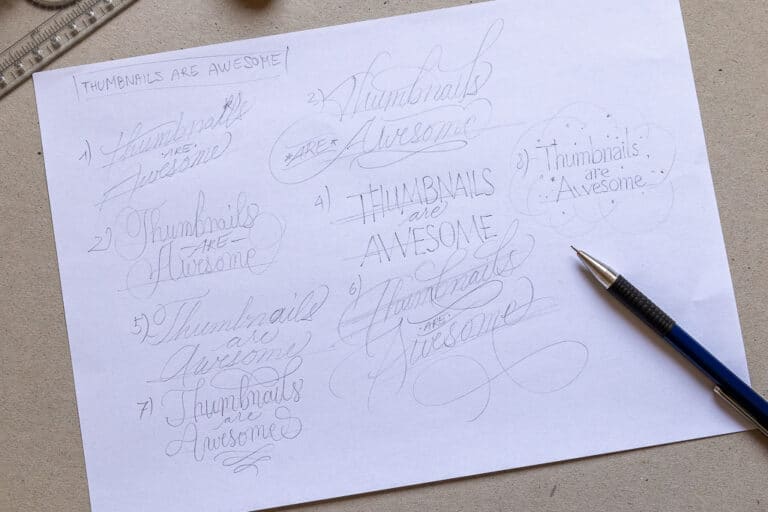 THUMBNAILS ARE AWESOME
1) Thumbnails
ARE
Awesome
2) Thumbnails
ARE
Awesome
2) Thumbnails
ARE
Awesome
4) THUMBNAILS
are
AWESOME
3) Thumbnails
are
Awesome
5) Thumbnails
are
Awesome
6) Thumbnails
ARE
Awesome
7) Thumbnails
are
Awesome